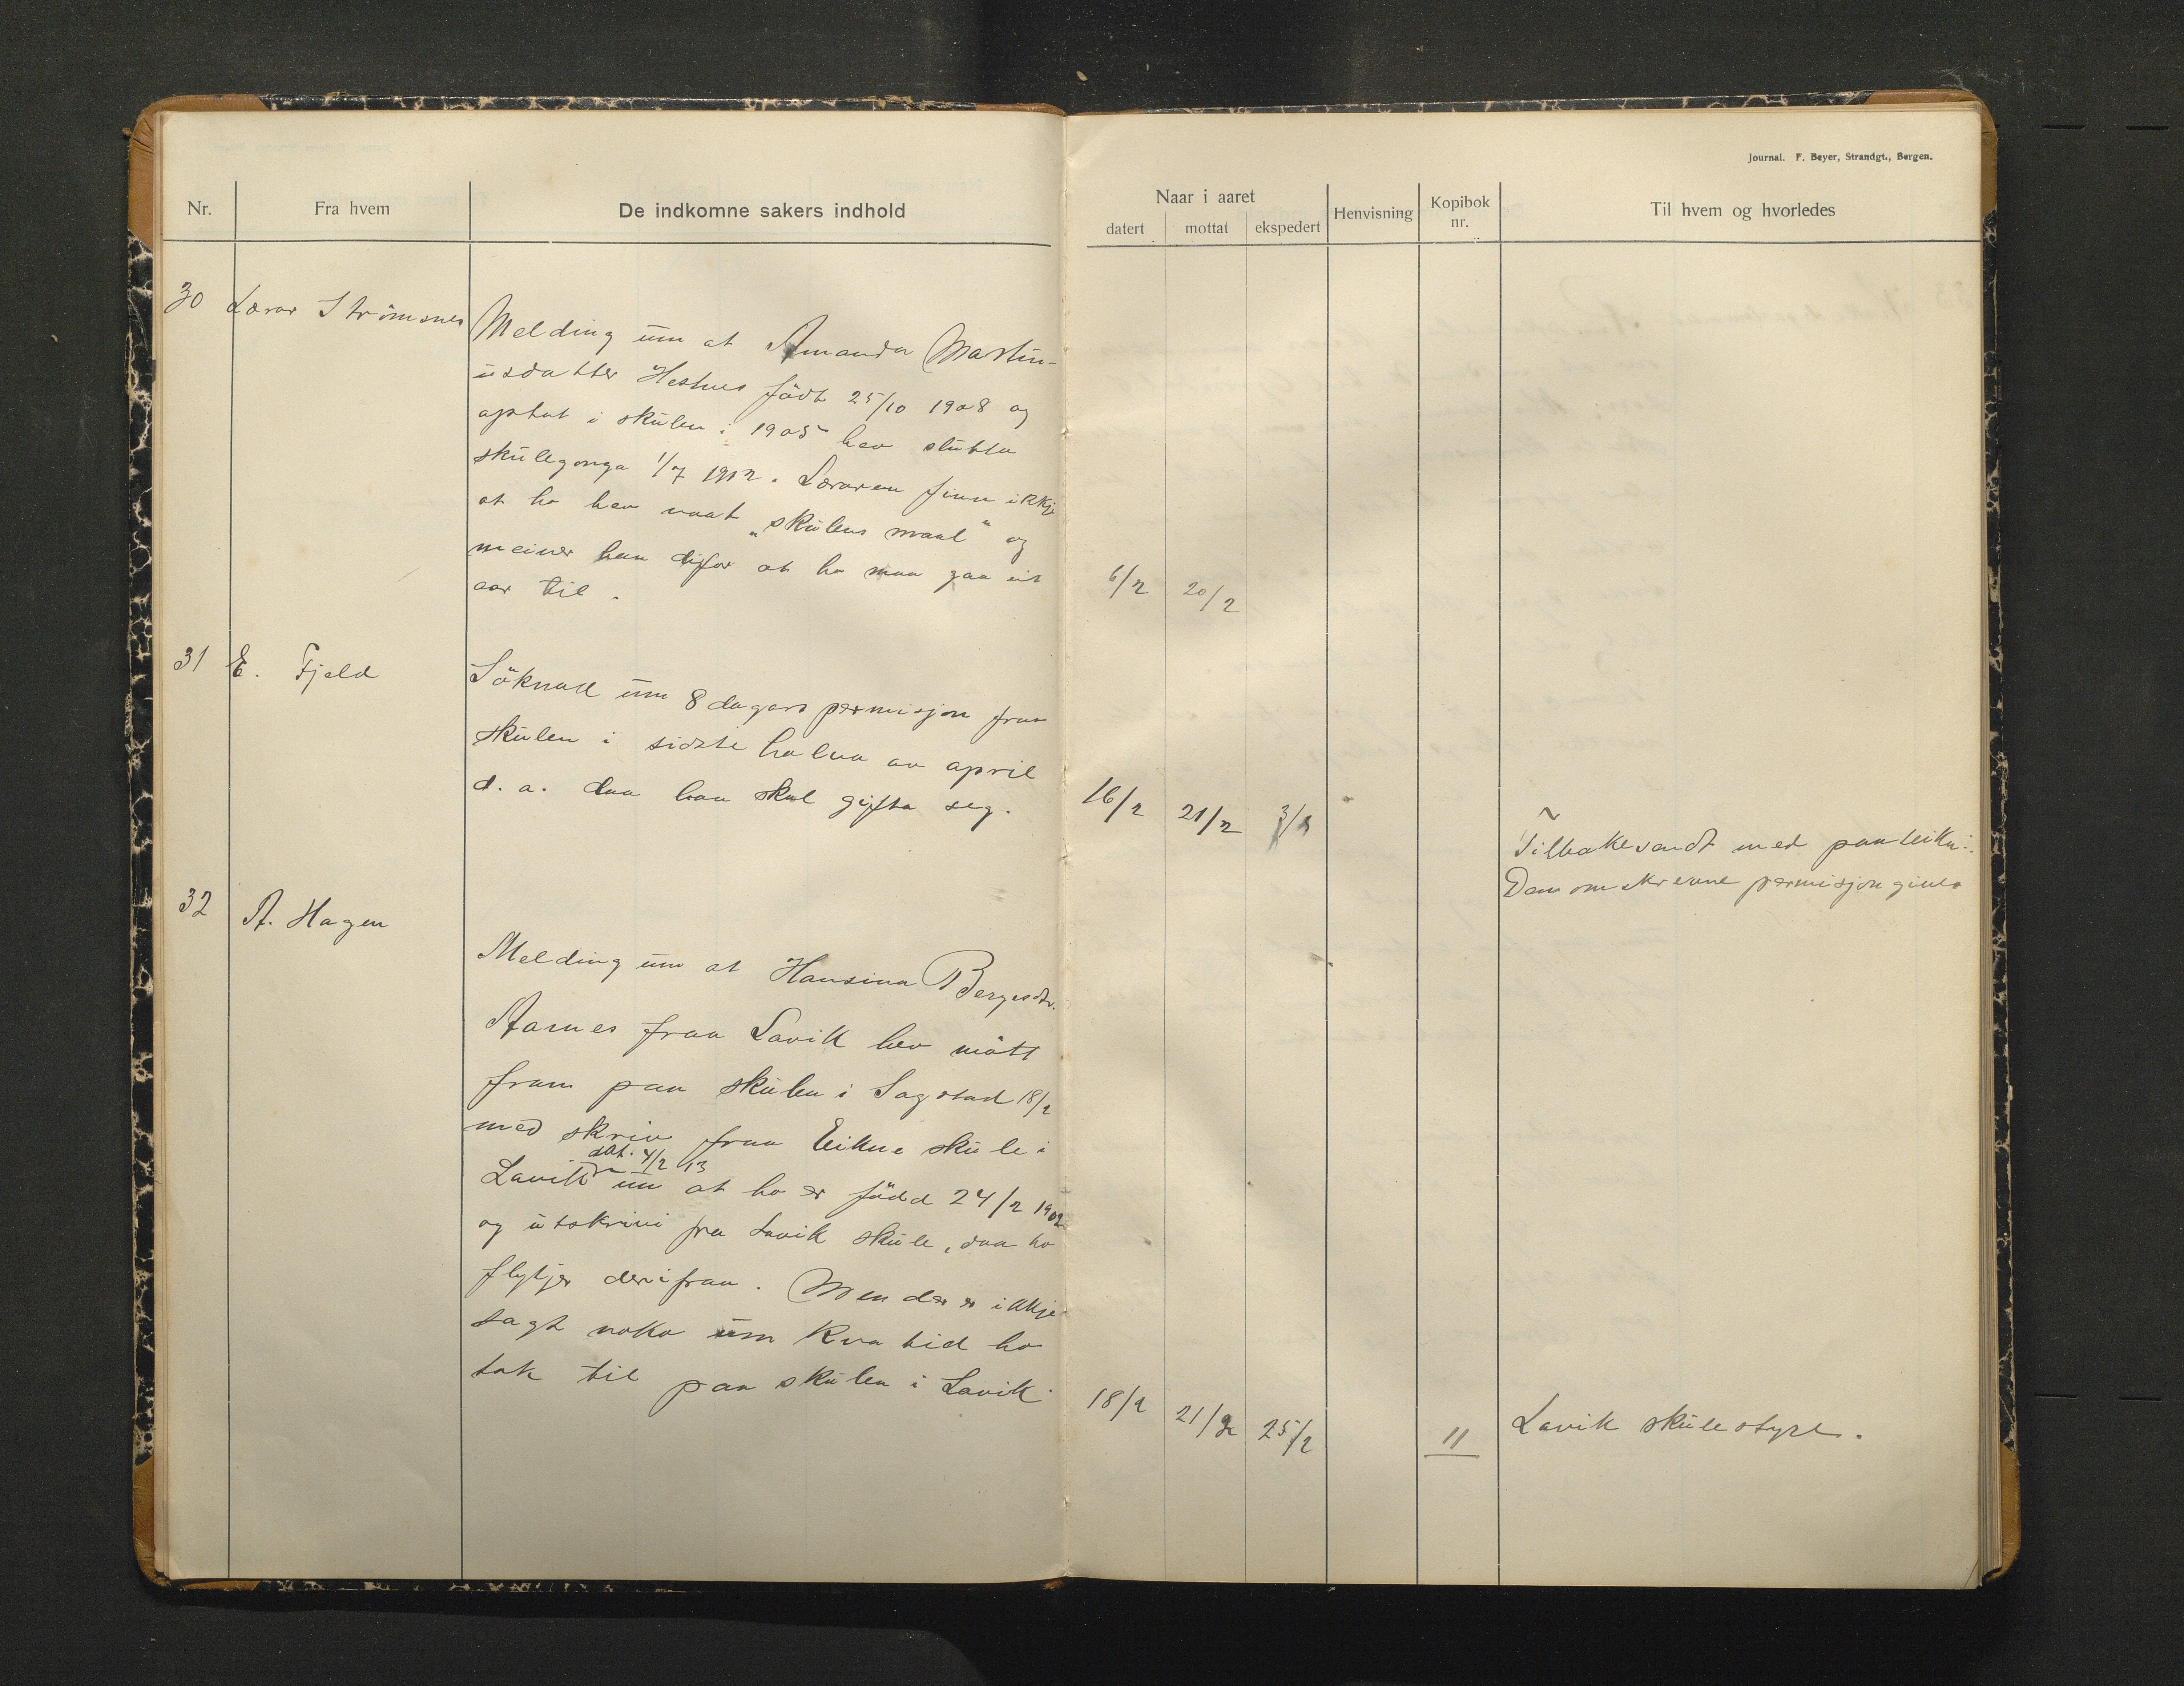 Journal. F. Beyer, Strandgt., Bergen.
Nr. Fra hvem De indkomne sakers indhold
Naar i aaret
datert mottat ekspedert Henvisning Kopibok nr. Til hvem og hvorledes
30 Lærar Strömsnes
Melding um at Amanda Martin-
usdatter Hestnes födt 25/10 1908 og
optat i skulen i 1905 hev slutta
skulegonga 1/7 1912. Læraren finn ikkje
at ho hev naat „skulens maal" og
meiner han difor at ho maa gaa eit
aar til. 6/2 20/2
31 E. Fjeld
Söknad um 8 dagars permisjon fraa
skulen i sidste halva av april
d. a. daa han skal gifta seg. 16/2 21/2 3/3
Tilbakesendt med paateikn:
Den omskrevne permisjon gives
32 A. Hagen
Melding um at Hansina Bergesdtr.
Aarnes fraa Lavik hev mött
fram paa skulen i Sagstad 18/2
med skriv fraa Eikne skule i
dat. 4/2 13
Lavik um at ho er född 24/2 1902
og utskrivi fra Lavik skule, daa ho
flytjer derifraa. Men der er ikkje
sagt noko um kva tid ho
tok til paa skulen i Lavik. 18/2 21/2 25/2 11 Lavik skulestyre.